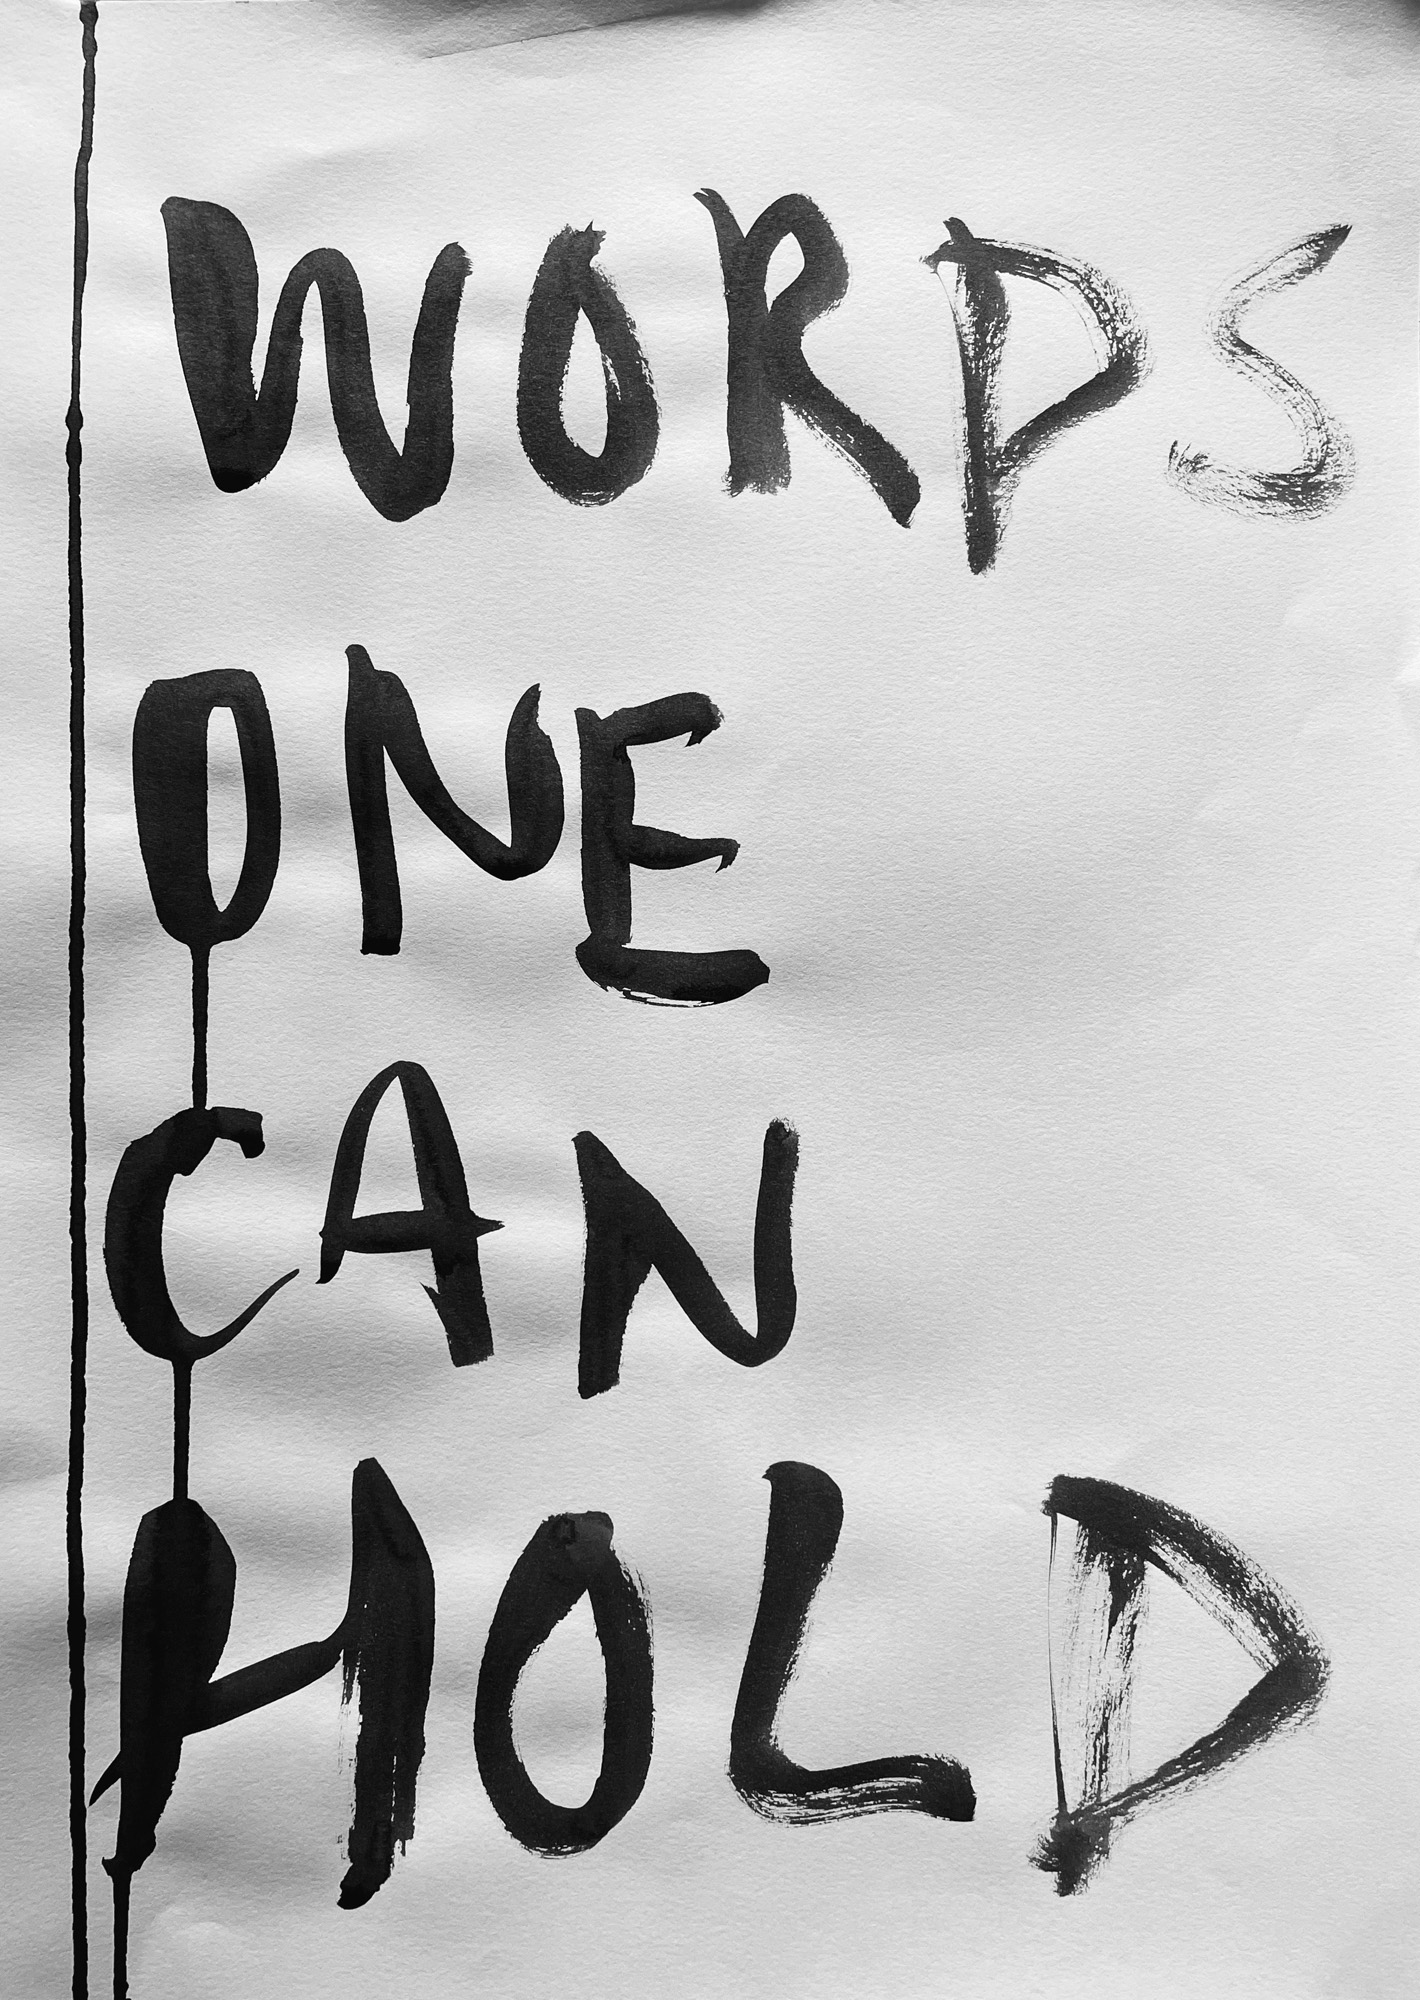 WORDS
ONE
CAN
HOLD